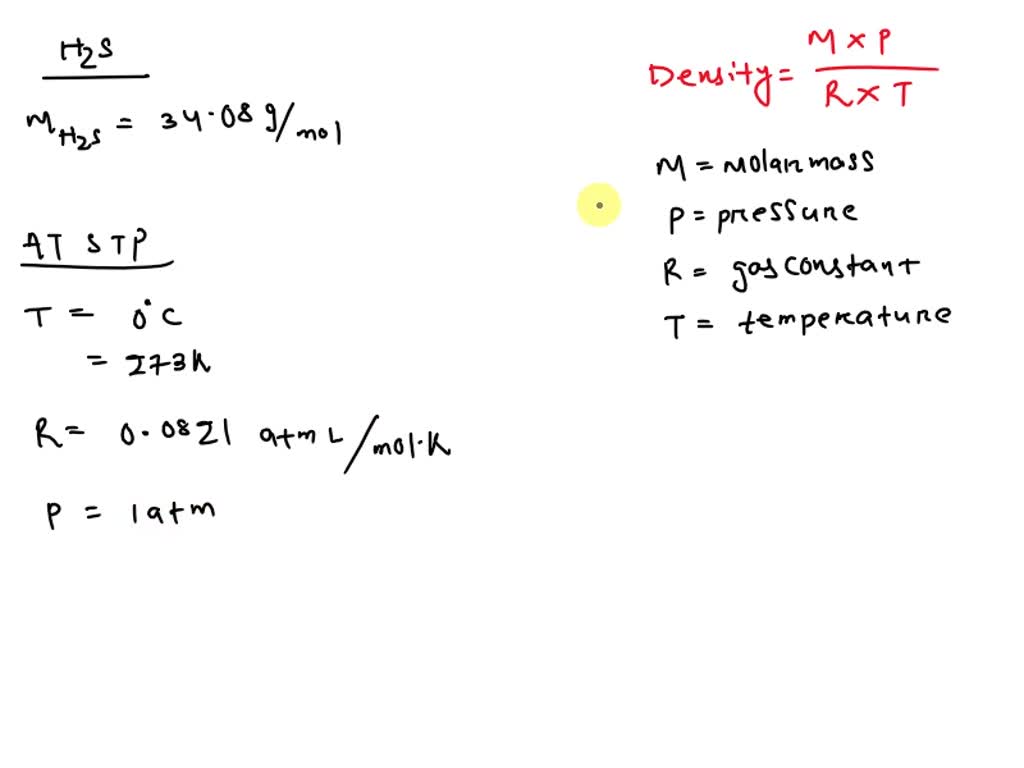 H2S
M H2S = 34.08 g/mol
AT STP
T = 0°C
= 273K
R = 0.0821 atm L/mol.K
P = 1atm
Density = M × P / R × T
M = Molar mass
P = pressure
R = gas constant
T = temperature